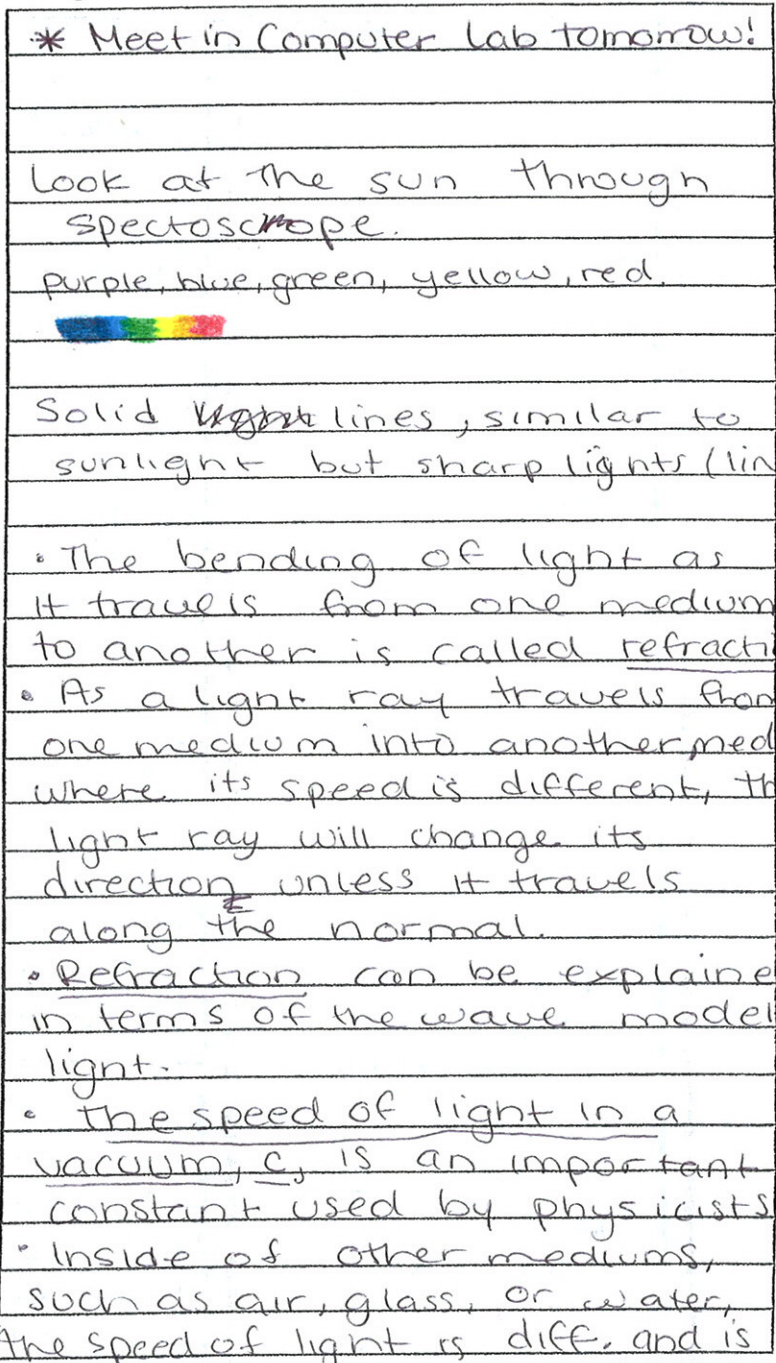 * Meet in Computer Lab tomorrow!
Look at the sun through
spectoscrope.
purple, blue, green, yellow, red.
Solid lines, similar to
sunlight but sharp lights (lin
• The bending of light as
it travels from one medium
to another is called refracti
• As a light ray travels from
one medium into another med
where its speed is different, th
light ray will change its
direction unless it travels
along the normal.
• Refraction can be explaine
in terms of the wave model
light.
• The speed of light in a
vacuum, c, is an important
constant used by physicists
• Inside of other mediums,
such as air, glass, or water,
the speed of light is diff. and is